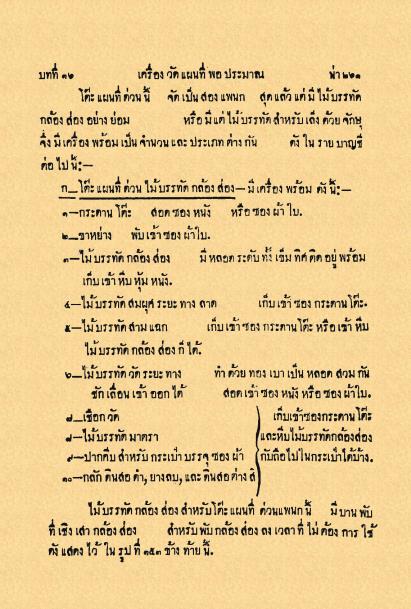 บทที่ ๑๖ เครื่อง วัด แผนที่ พอ ประมาณ น่า ๒๑๑
โต๊ะ แผนที่ ด่วน นี้ จัด เป็น สอง แพนก สุด แล้ว แต่ มี ไม้ บรรทัด
กล้อง ส่อง อย่าง ย่อม หรือ มี แต่ ไม้ บรรทัด สำหรับ เล็ง ด้วย จักษุ
จึ่ง มี เครื่อง พร้อม เป็น จำนวน และ ประเภท ต่าง กัน ดัง ใน ราย บาญชี
ต่อ ไป นี้:—
ก—โต๊ะ แผนที่ ด่วน ไม้ บรรทัด กล้อง ส่อง—มี เครื่อง พร้อม ดัง นี้:—
๑—กระดาน โต๊ะ สอด ซอง หนัง หรือ ซอง ผ้า ใบ.
๒—ขาหย่าง พับ เข้า ซอง ผ้า ใบ.
๓—ไม้ บรรทัด กล้อง ส่อง มี หลอด ระดับ ทั้ง เข็ม ทิศ ติด อยู่ พร้อม
เก็บ เข้า หีบ หุ้ม หนัง.
๔—ไม้ บรรทัด สมผุศ ระยะ ทาง ลาด เก็บ เข้า ซอง กระดาน โต๊ะ.
๕—ไม้ บรรทัด สาม แฉก เก็บ เข้า ซอง กระดาน โต๊ะ หรือ เข้า หีบ
ไม้ บรรทัด กล้อง ส่อง ก็ ได้.
๖—ไม้ บรรทัด วัด ระยะ ทาง ทำ ด้วย ทอง เบา เป็น หลอด สวม กัน
ชัก เลื่อน เข้า ออก ได้ สอด เข้า ซอง หนัง หรือ ซอง ผ้า ใบ.
๗—เชือก วัด เก็บ เข้าซองกระดาน โต๊ะ
๘—ไม้ บรรทัด มาตรา และหีบไม้บรรทัดกล้องส่อง
๙—ปากคีบ สำหรับ กระเป๋า บรรจุ ซอง ผ้า กับถือไปในกระเป๋าได้บ้าง.
๑๐—กลัก ดินสอ ดำ, ยางลบ, และ ดินสอ ต่าง สี
ไม้ บรรทัด กล้อง ส่อง สำหรับ โต๊ะ แผนที่ ด่วนแพนก นี้ มี บาน พับ
ที่ เชิง เสา กล้อง ส่อง สำหรับ พับ กล้อง ส่อง ลง เวลา ที่ ไม่ ต้อง การ ใช้
ดัง แสดง ไว้ ใน รูป ที่ ๑๕๓ ข้าง ท้าย นี้.